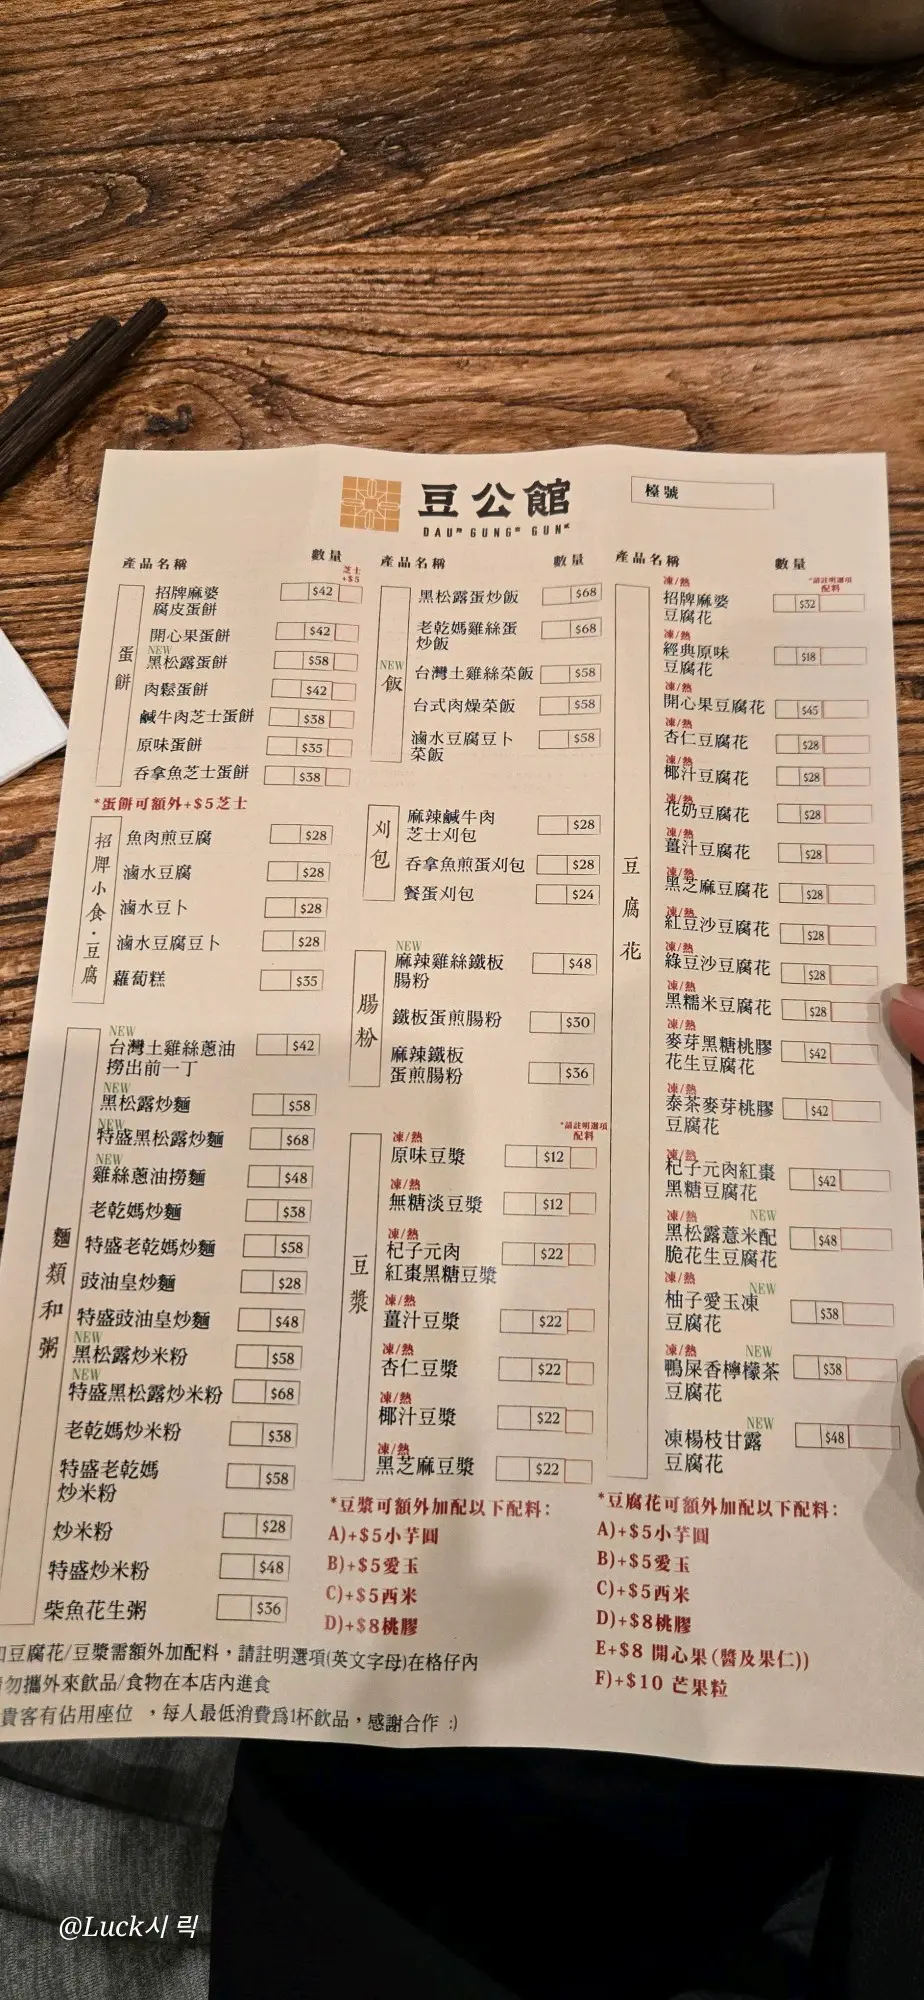 豆公館
DAU GUNG GUN
檯號
產品名稱
數量
芝士
+$5
蛋餅
招牌麻婆
腐皮蛋餅
$42
開心果蛋餅
$42
NEW
黑松露蛋餅
$58
肉鬆蛋餅
$42
鹹牛肉芝士蛋餅
$38
原味蛋餅
$35
吞拿魚芝士蛋餅
$38
*蛋餅可額外+$5芝士
招牌小食·豆腐
魚肉煎豆腐
$28
滷水豆腐
$28
滷水豆卜
$28
滷水豆腐豆卜
$28
蘿蔔糕
$35
麵類和粥
NEW
台灣土雞絲蔥油
撈出前一丁
$42
NEW
黑松露炒麵
$58
NEW
特盛黑松露炒麵
$68
NEW
雞絲蔥油撈麵
$48
老乾媽炒麵
$38
特盛老乾媽炒麵
$58
豉油皇炒麵
$28
特盛豉油皇炒麵
$48
NEW
黑松露炒米粉
$58
NEW
特盛黑松露炒米粉
$68
老乾媽炒米粉
$38
特盛老乾媽
炒米粉
$58
炒米粉
$28
特盛炒米粉
$48
柴魚花生粥
$36
產品名稱
數量
NEW
飯
黑松露蛋炒飯
$68
老乾媽雞絲蛋
炒飯
$68
台灣土雞絲菜飯
$58
台式肉燥菜飯
$58
滷水豆腐豆卜
菜飯
$58
刈包
麻辣鹹牛肉
芝士刈包
$28
吞拿魚煎蛋刈包
$28
餐蛋刈包
$24
腸粉
NEW
麻辣雞絲鐵板
腸粉
$48
鐵板蛋煎腸粉
$30
麻辣鐵板
蛋煎腸粉
$36
豆漿
*請註明選項
配料
凍/熱
原味豆漿
$12
凍/熱
無糖淡豆漿
$12
凍/熱
杞子元肉
紅棗黑糖豆漿
$22
凍/熱
薑汁豆漿
$22
凍/熱
杏仁豆漿
$22
凍/熱
椰汁豆漿
$22
凍/熱
黑芝麻豆漿
$22
*豆漿可額外加配以下配料：
A)+$5小芋圓
B)+$5愛玉
C)+$5西米
D)+$8桃膠
產品名稱
數量
*請註明選項
配料
豆腐花
凍/熱
招牌麻婆
豆腐花
$32
凍/熱
經典原味
豆腐花
$18
凍/熱
開心果豆腐花
$45
凍/熱
杏仁豆腐花
$28
凍/熱
椰汁豆腐花
$28
凍/熱
花奶豆腐花
$28
凍/熱
薑汁豆腐花
$28
凍/熱
黑芝麻豆腐花
$28
凍/熱
紅豆沙豆腐花
$28
凍/熱
綠豆沙豆腐花
$28
凍/熱
黑糯米豆腐花
$28
凍/熱
麥芽黑糖桃膠
花生豆腐花
$42
凍/熱
泰茶麥芽桃膠
豆腐花
$42
凍/熱
杞子元肉紅棗
黑糖豆腐花
$42
凍/熱 NEW
黑松露薏米配
脆花生豆腐花
$48
凍/熱 NEW
柚子愛玉凍
豆腐花
$38
凍/熱 NEW
鴨屎香檸檬茶
豆腐花
$38
NEW
凍楊枝甘露
豆腐花
$48
*豆腐花可額外加配以下配料：
A)+$5小芋圓
B)+$5愛玉
C)+$5西米
D)+$8桃膠
E+$8 開心果(醬及果仁))
F)+$10 芒果粒
豆腐花/豆漿需額外加配料，請註明選項(英文字母)在格仔內
勿攜外來飲品/食物在本店內進食
貴客有佔用座位 ，每人最低消費爲1杯飲品，感謝合作 :)
@Luck시 릭